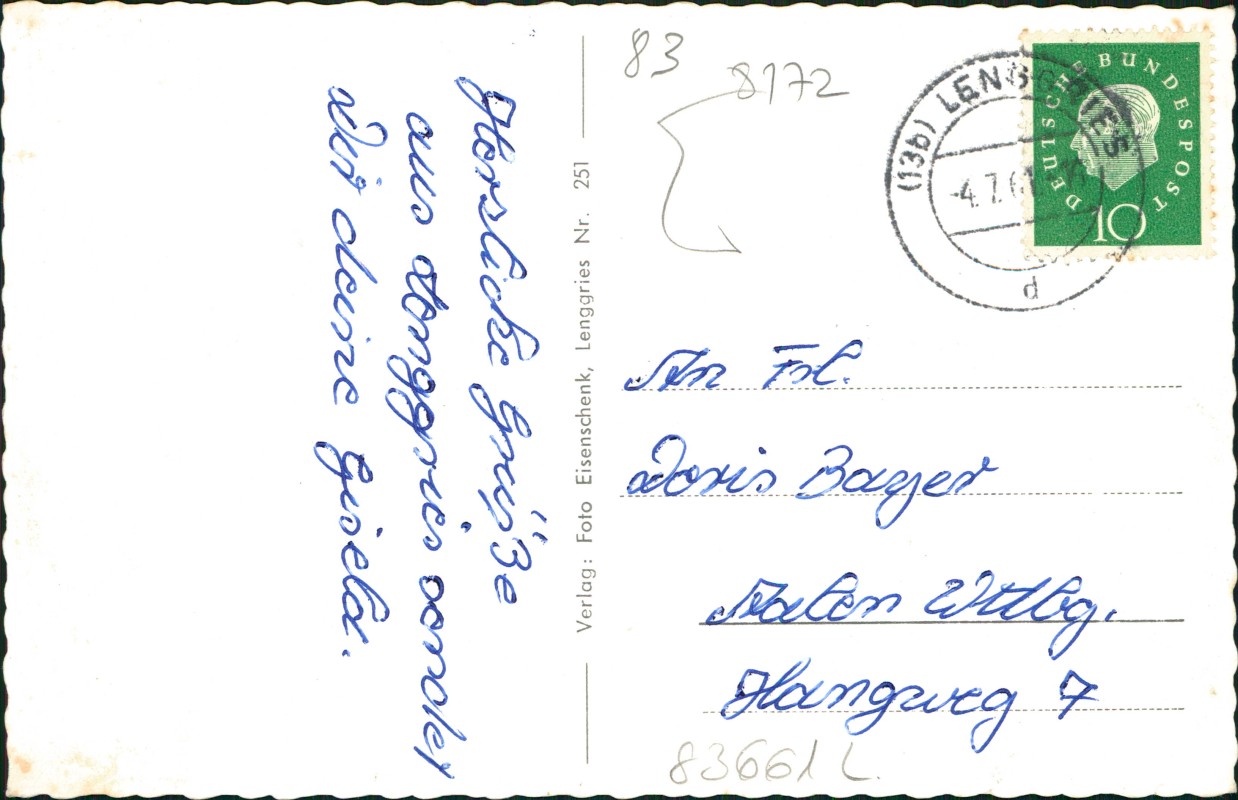 Herzliche Grüße
aus Lenggries sendet
Dir deine Gisela.
Verlag: Foto Eisenschenk, Lenggries Nr. 251
83
8172
(13b) LENGGRIES
-4.7.61
d
DEUTSCHE BUNDESPOST
10
An Frl.
Doris Bayer
Aalen Wttbg.
Hangweg 7
83661 L.